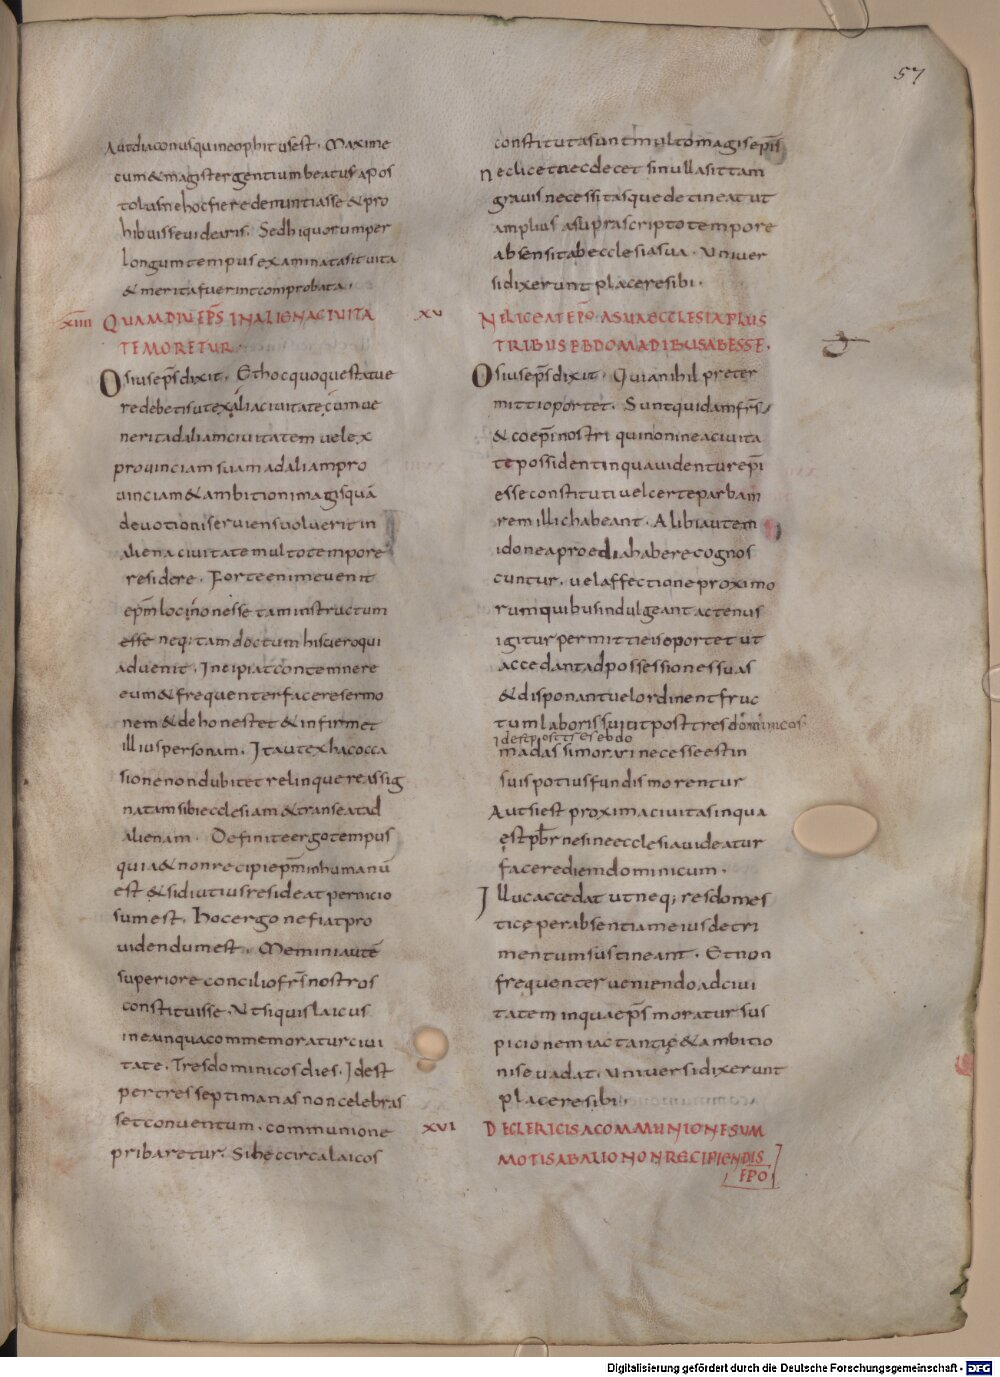 57
Aut diaconus qui neophitus est. Maxime
cum & magister gentium beatus apos
tolus ne hoc fieret denuntiasse & pro
hibuisse videaris. Sed hi quorum per
longum tempus examinata sit vita
& merita fuerint comprobata.
XIIII QUAMDIU EP̄S IN ALIENA CIVITA
TE MORETUR
Osius ep̄s dixit. Et hoc quoque statue
re debetis ut ex alia civitate cum ve
nerit ad aliam civitatem vel ex
provinciam suam ad aliam pro
vinciam & ambitioni magis quā
devotioni serviens voluerit in
aliena civitate multo tempore
residere. Forte enim evenit
ep̄m loci non esse tam instructum
esse neq; tam doctum his vero qui
advenit. Incipiat contemnere
eum & frequenter facere sermo
nem & dehonestet & infirmet
illius personam. Ita ut ex hac occa
sione non dubitet relinquere assig
natam sibi ecclesiam & transeat ad
alienam. Definite ergo tempus
quia & non recipi ep̄m inhumanū
est & si diutius resideat pernicio
sum est. hoc ergo ne fiat pro
videndum est. Memini autē
superiore concilio fr̄s nostros
constituisse. Ut si quis laicus
in ea in qua commemoratur civi
tate. Tres dominicos dies. Id est
per tres septimanas non celebras
set conventum. communione
privaretur. Si hec circa laicos
constituta sunt multo magis ep̄is
nec licet nec decet si nulla sit tam
gravis necessitas que detineat ut
amplius a suprascripto tempore
absens sit ab ecclesia sua. Univer
si dixerunt placere sibi.
XV NE LICEAT EP̄O A SUA ECCLESIA PLUS
TRIBUS EBDOMADIBUS ABESSE.
Osius ep̄s dixit. Quia nihil preter
mitti oportet. Sunt quidam fr̄s
& coep̄i nostri qui non in ea civita
te possident in qua videntur ep̄i
esse constituti vel certe parbam
rem illic habeant. Alibi autem
idonea proedia habere cognos
cuntur. vel affectione proximo
rum quibus indulgeant actenus
igitur permitti eis oportet ut
accedant ad possessiones suas
& disponant vel ordinent fruc
tum laboris sui ut post tres dominicos
id est post tres ebdo
madas si morari necesse est in
suis potius fundis morentur
Aut si est proxima civitas in qua
est pb̄r ne sine ecclesia videatur
facere diem dominicum.
Illuc accedat ut neq; res domes
ticę per absentiam eius detri
mentum sustineant. Et non
frequenter veniendo ad civi
tatem in qua ep̄s moratur sus
picionem iactantię & ambitio
nis evadat. universi dixerunt
placere sibi.
XVI DE CLERICIS A COMMUNIONE SUM
MOTIS AB ALIO NON RECIPIENDIS
EPO